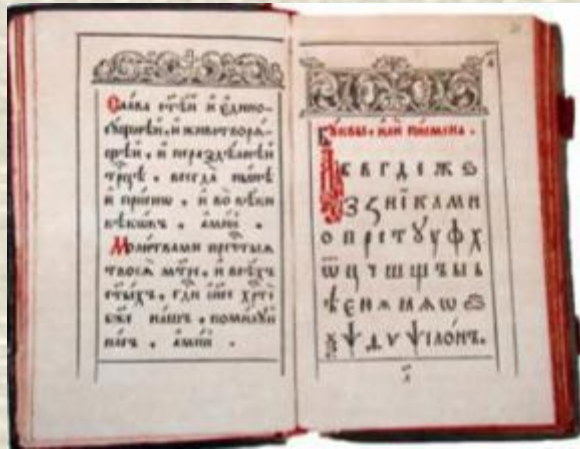 Сла́ва ст҃ѣ́й и҆ є҆дино-
су́щнѣй, и҆ животворѧ́-
щей, и҆ неразде́лнѣй
трⷪ҇цѣ, всегда̀ ны́нѣ
и҆ при́снѡ, и҆ во вѣ́ки
вѣкѡ́въ. а҆ми́нь.
Моли́твами пречⷭ҇тыѧ
твоеѧ̀ мт҃ре, и҆ всѣ́хъ
ст҃ы́хъ, гдⷭ҇и і҆и҃се хрⷭ҇тѐ
бж҃е на́шъ, поми́лꙋй
на́съ. а҆ми́нь.
Бꙋ́квы, и҆лѝ пи́смена.
А б в г д є ж ѕ
з и ї к л м н
о п р с т ѹ ф х
ѿ ц ч ш щ ъ ы ь
ѣ
ѱ ѵ ѱїло́нъ.